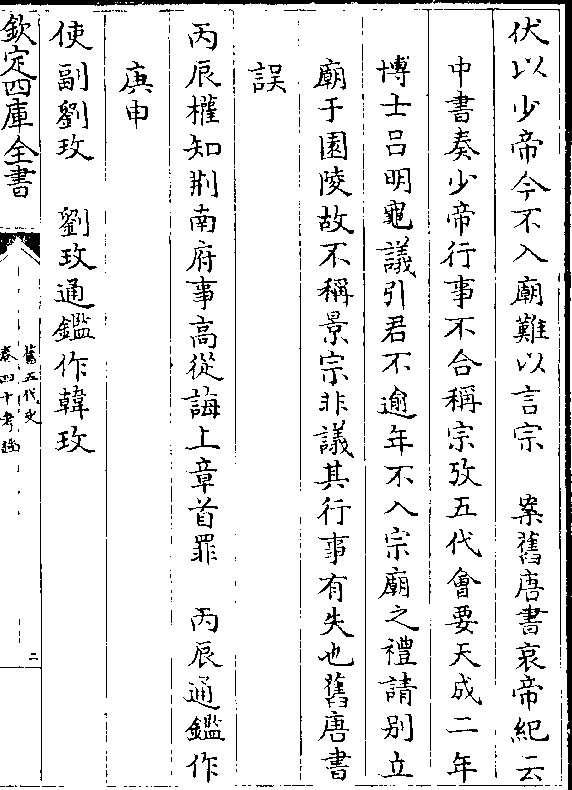 伏以少帝今不入廟難以言宗　案舊唐書哀帝紀云
中書奏少帝行事不合稱宗攷五代會要天成二年
博士呂明龜議引君不逾年不入宗廟之禮請别立
廟于園陵故不稱景宗非議其行事有失也舊唐書
誤
丙辰權知荆南府事高從誨上章首罪　丙辰通鑑作
庚申
使副劉玫　劉玫通鑑作韓玫
欽定四庫全書
舊五代史
卷四十考證
二